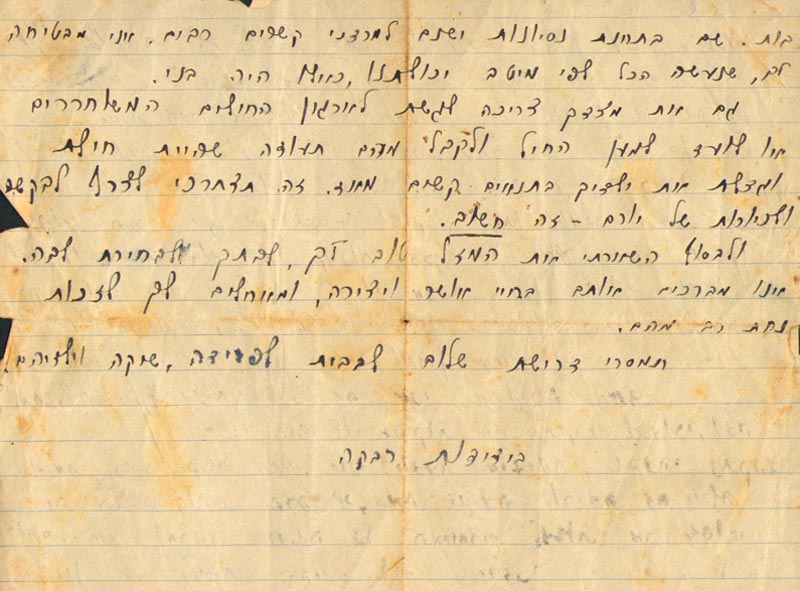 בות. שם בתחנת נסיונות ישנם למרדכי קשרים רבים. אני מבטיחה
לך, שנעשה הכל לפי מיטב יכולתנו, כאילו היה בני.
גם את מצדך צריכה לגשת לארגון החיילים המשוחררים
או לועד למען החיל ולקבל מהם תעודה שהיית חיילת
וגדלת את ילדיך בתנאים קשים מאוד. זה תצטרכי לצרף לבקשה
ולשארות של יורם - זה חשוב.
ולבסוף השארתי את המזל טוב לך, לבתך ולבחירת לבה.
אנו מברכים אותם בחיי אושר ויצירה, ומאוחלים לך לזכות
נחת רב מהם.
תמסרי דרישת שלום לבבית לפרידה, שוקה וילדיהם.
בידידות רבקה